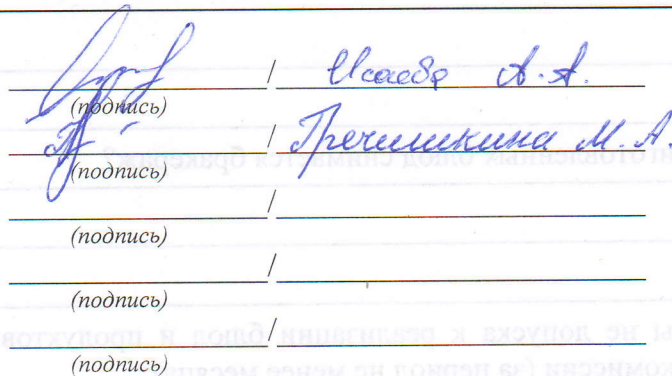 / Исаева А.А.
(подпись)
/ Гречишкина М.А.
(подпись)
/
(подпись)
/
(подпись)
/
(подпись)